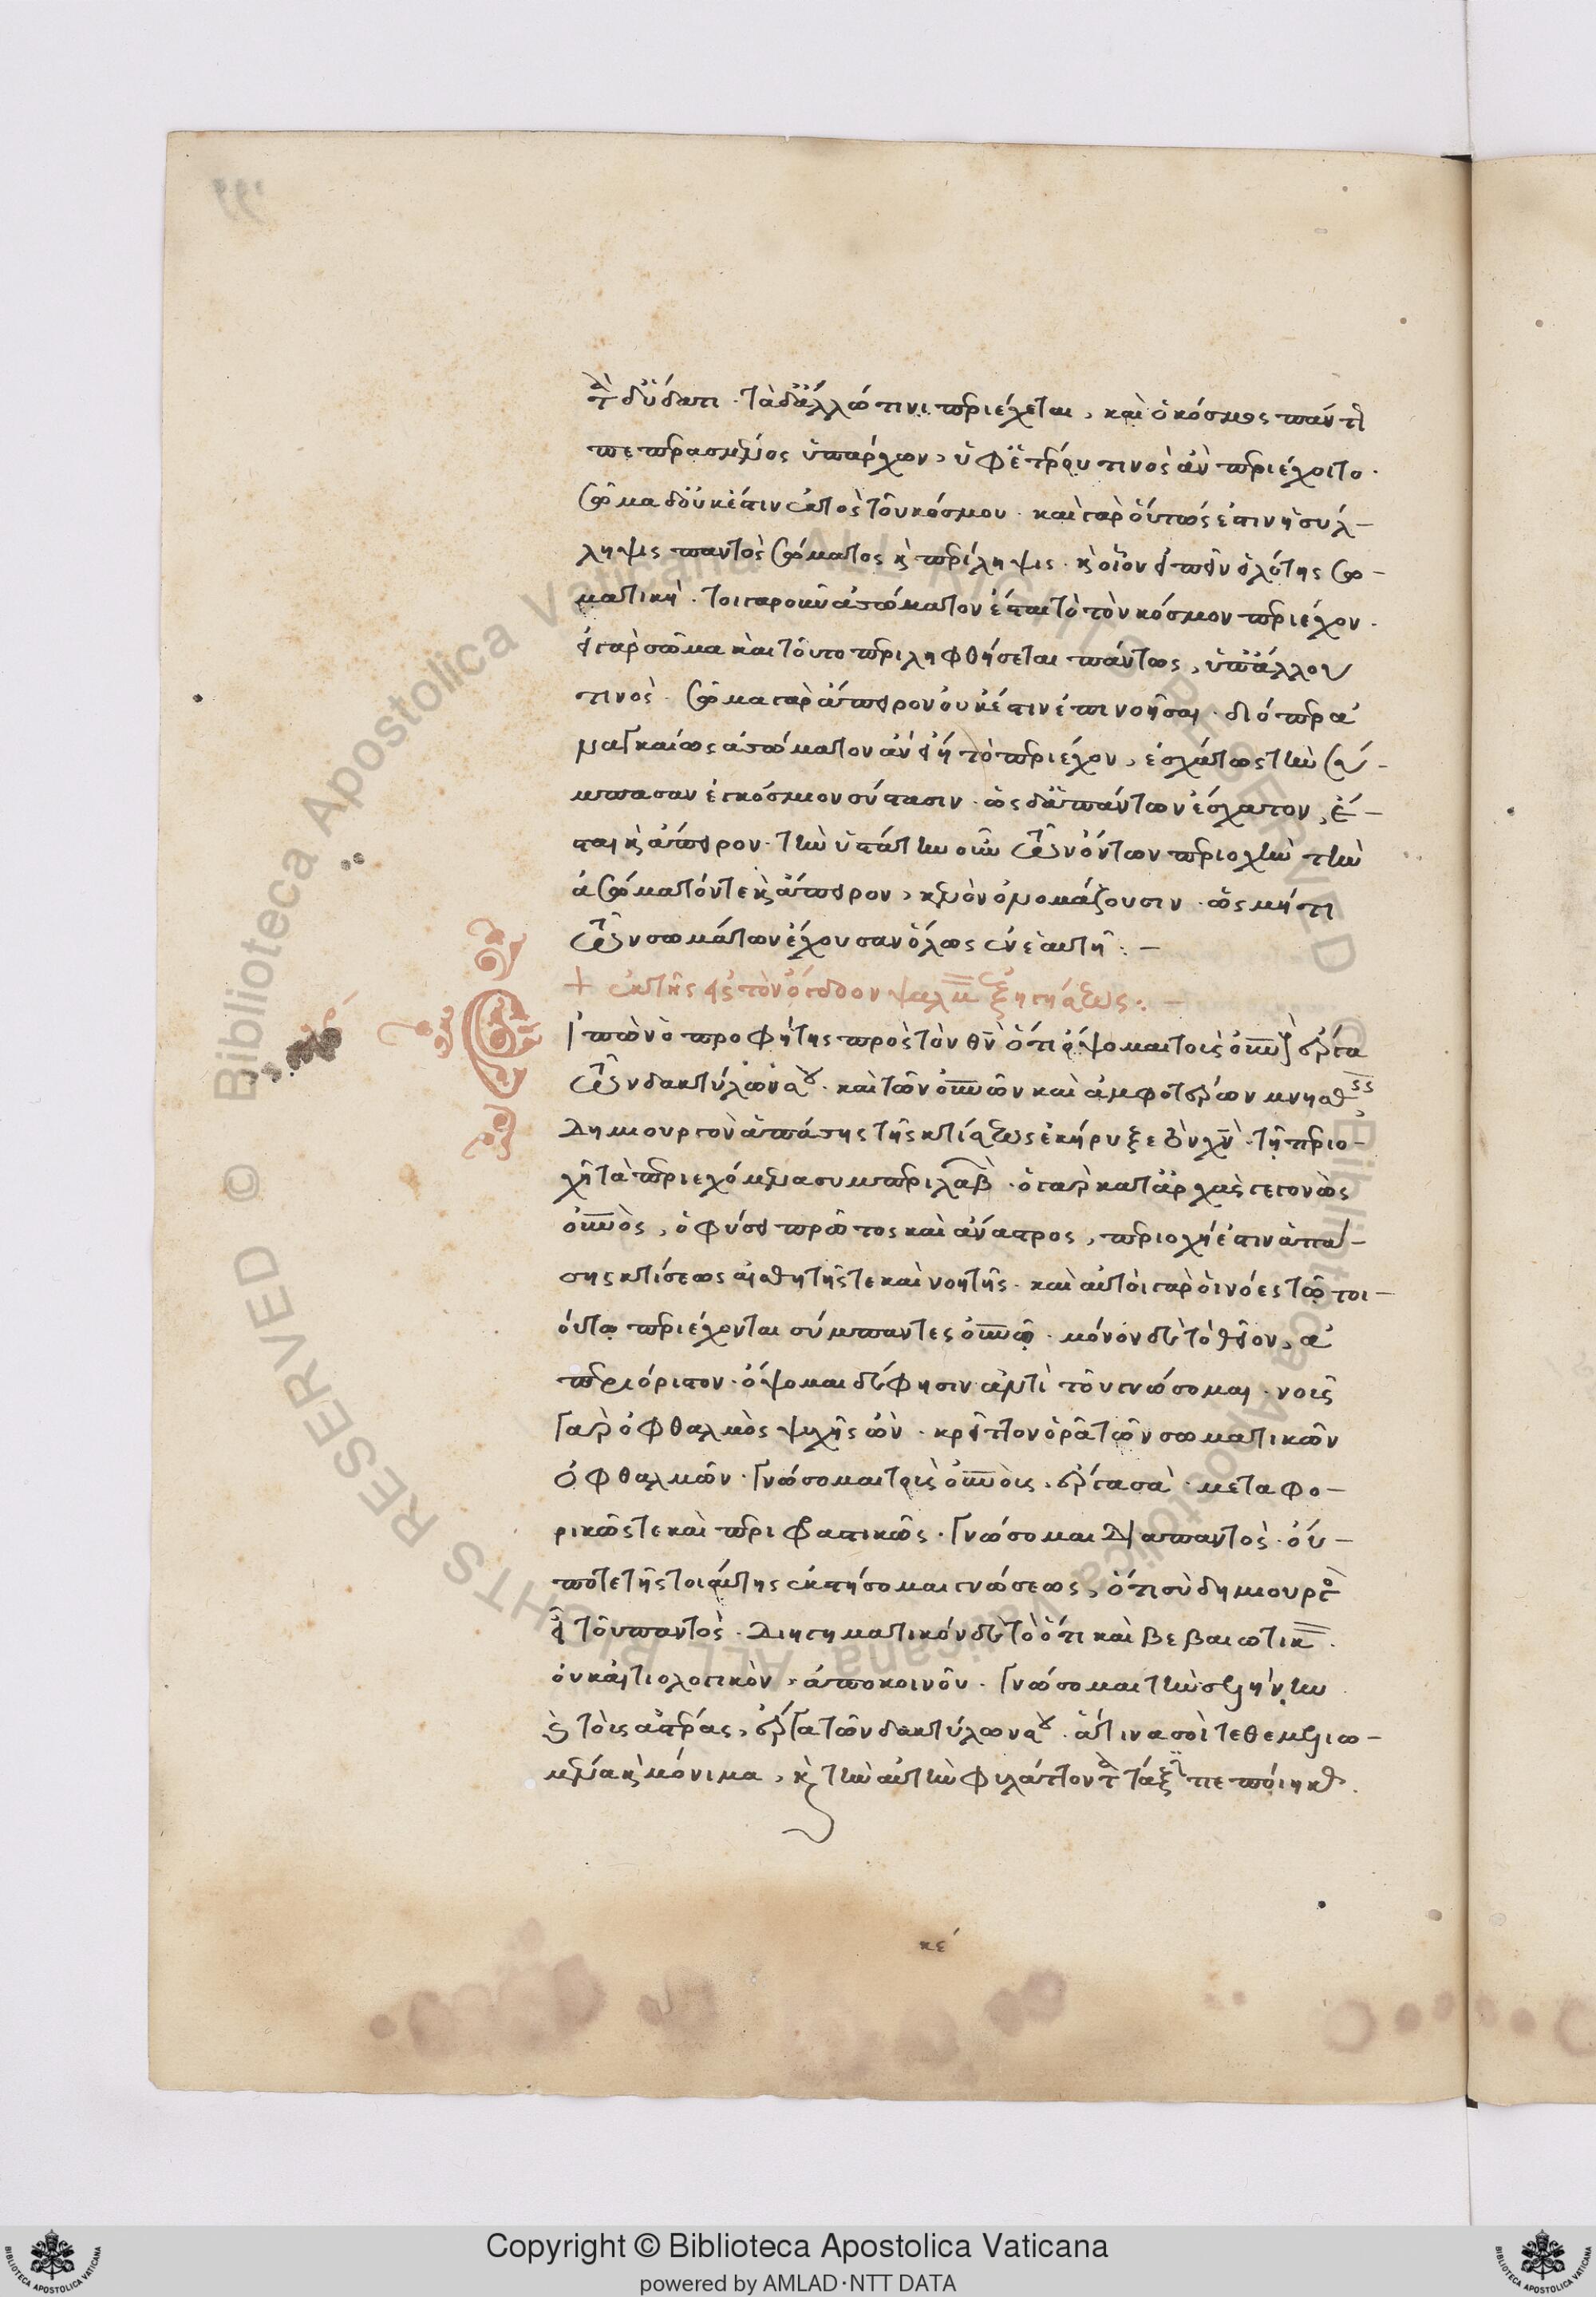 τὰ δ' ὕδατι · τὰ δ' ἄλλω τινι περιέχεται, καὶ ὁ κόσμος πάντη
πεπερασμένος ὑπάρχων, ὑφ' ἑτέρου τινὸς ἂν περιέχοιτο ·
σῶμα δ' οὐκ ἔστιν ἐκτὸς τοῦ κόσμου · καὶ γὰρ οὗτός ἐστιν ἡ σύλ–
ληψις παντὸς σώματος κ περίληψις · κ οἷον εἰπεῖν ὁλότης σω–
ματική · τοιγαροῦν ἀσώματον ἔσται τὸ τὸν κόσμον περιέχον ·
εἰ γὰρ σῶμα καὶ τοῦτο περιληφθήσεται πάντως, ὑπ' ἄλλου
τινὸς · σῶμα γὰρ ἄπειρον οὐκ ἔστιν ἐπινοῆσαι · διόπερ ἀ
ναγκαίως ἀσώματον ἂν εἴη τὸ περιέχον, ἐσχάτως τὴν σύ–
μπασαν ἐγκόσμιον σύστασιν · ὡς δ' ἁπάντων ἔσχατον, ἔ–
σται κ ἄπειρον · τὴν ὑστάτην οὖν τῶν ὄντων περιοχὴν τὴν
ἀσώματόν τε κ ἄπειρον, κενὸν ὀνομάζουσιν · ὡς μή τι
τῶν σωμάτων ἔχουσαν ὅλως ἐν ἑαυτῇ : –
+ ἐκ τῆς εἰς τὸν ὄγδοον ψαλμ ἐξηγήσεως : –
Εἰπὼν ὁ προφήτης πρὸς τὸν θν ὅτι ὄψομαι τοὺς οὐνοὺς ἔργα
τῶν δακτύλων σου · καὶ τῶν οὐνῶν καὶ ἀμφοτέρων μνησθεὶς
δημιουργὸν ἁπάσης τῆς κτίσεως ἐκήρυξε τὸν χν · τῇ περιο–
χῇ τὰ περιεχόμενα συμπεριλαβ · ὁ γὰρ κατ' ἀρχὰς γεγονὼς
οὐνὸς, ὁ φύσει πρῶτος καὶ ἄναστρος, περιοχή ἐστιν ἁπά–
σης κτίσεως αἰσθητῆς τε καὶ νοητῆς · καὶ αὐτοὶ γὰρ οἱ νόες τῶ τοι–
ούτω περιέχονται σύμπαντες οὐνῶ · μόνον δὲ τὸ θεῖον, ἀ
περιόριστον · ὄψομαι δέ φησιν ἀντὶ τοῦ γνώσομαι · νοῦς
γὰρ ὀφθαλμὸς ψυχῆς ὢν · κρεῖττον ὁρᾶ τῶν σωματικῶν
ὀφθαλμῶν · γνώσομαι τοὺς οὐνοὺς, ἔργα σὰ · μεταφο–
ρικῶς τε καὶ περιφραστικῶς · γνώσομαι διαπαντὸς · οὔ–
ποτε τῆς τοιαύτης ἐκστήσομαι γνώσεως, ὅτι σὺ δημιουργὸς
εἶ τοῦ παντὸς · διηγηματικόν δὲ τὸ ὅτι καὶ βεβαιωτικ ·
οὐκ αἰτιολογικὸν, ἀπὸ κοινοῦ · γνώσομαι τὴν σελήνην
κ τοὺς ἀστέρας, ἔργα τῶν δακτύλων σου · ἅτινα σοὶ τεθεμελιω–
μένα κ μόνιμα, κ τὴν αὐτὴν φυλάττοντα τάξιν πεποίηκας ·
κε
Copyright © Biblioteca Apostolica Vaticana
powered by AMLAD·NTT DATA